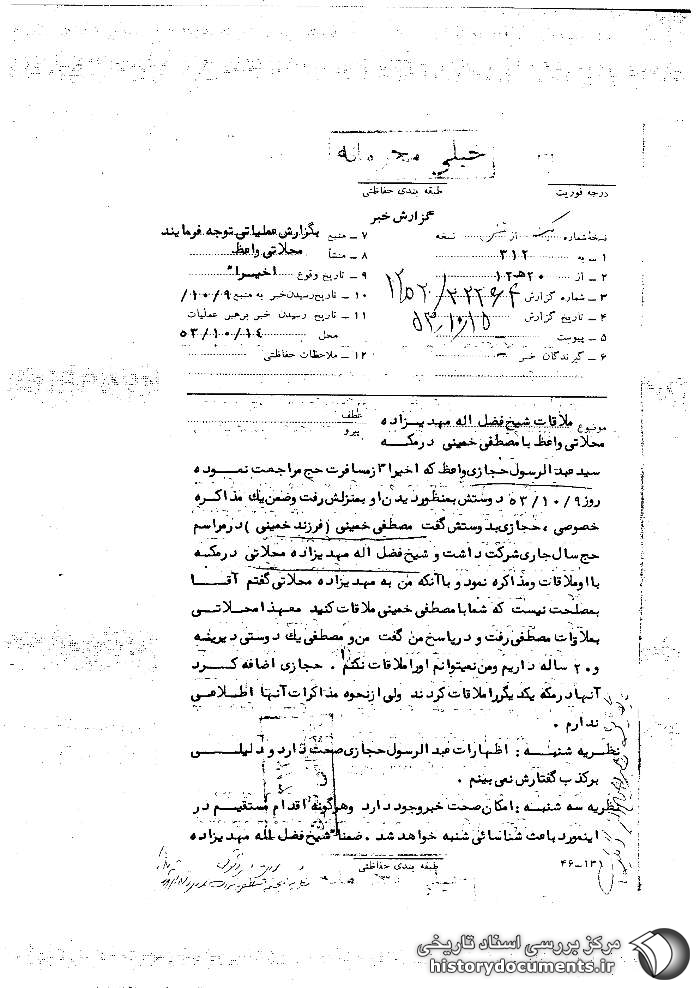 خیلی محرمانه
طبقه بندی حفاظتی
درجه فوریت
گزارش خبر
نسخه شماره یک از نسخه
۱ ـ به ۳۱۲
۲ ـ از ۲۰ هـ ۱۲
۳ ـ شماره گزارش
۴ ـ تاریخ گزارش ۵۳/۱۰/۱۵
۵ ـ پیوست
۶ ـ گیرندگان خبر
۷ ـ منبع بگزارش عملیاتی توجه فرمایند
۸ ـ منشأ محلاتی واعظ
۹ ـ تاریخ وقوع اخیرا"
۱۰ ـ تاریخ رسیدن خبر به منبع ۱۰/۹/
۱۱ ـ تاریخ رسیدن خبر برهبر عملیات
محل ۵۳/۱۰/۱۴
۱۲ ـ ملاحظات حفاظتی
موضوع ملاقات شیخ فضل اله مهدیزاده
محلاتی واعظ با مصطفی خمینی در مکه
عطف
پیرو
سید عبدالرسول حجازی واعظ که اخیرا از مسافرت حج مراجعت نموده
روز ۵۳/۱۰/۹ دوستش بمنظور دیدن او بمنزلش رفت وضمن یك مذاکره
خصوصی ، حجازی بدوستش گفت مصطفی خمینی (فرزند خمینی) در مراسم
حج سال جاری شرکت داشت و شیخ فضل اله مهدیزاده محلاتی در مکه
با او ملاقات ومذاکره نمود و با آنکه من به مهدیزاده محلاتی گفتم آقا
بمصلحت نیست که شما با مصطفی خمینی ملاقات کنید معهذا محلاتی
بملاقات مصطفی رفت و در پاسخ من گفت من و مصطفی یك دوستی دیرینه
و ۲۰ ساله داریم ومن نمیتوانم اورا ملاقات نکنم . حجازی اضافه کرد
آنها در مکه یکدیگر را ملاقات کردند ولی از نحوه مذاکرات آنها اطلاعی
ندارم .
نظریه شنبه : اظهارات عبدالرسول حجازی صحت دارد و دلیلی
بر کذب گفتارش نمی بینم .
نظریه سه شنبه : امکان صحت خبر وجود دارد وهرگونه اقدام مستقیم در
اینمورد باعث شناسائی شنبه خواهد شد . ضمنا" شیخ فضل اله مهدیزاده
طبقه بندی حفاظتی
۴۶ــ۱۳۱
مرکز بررسی اسناد تاریخی
historydocuments.ir